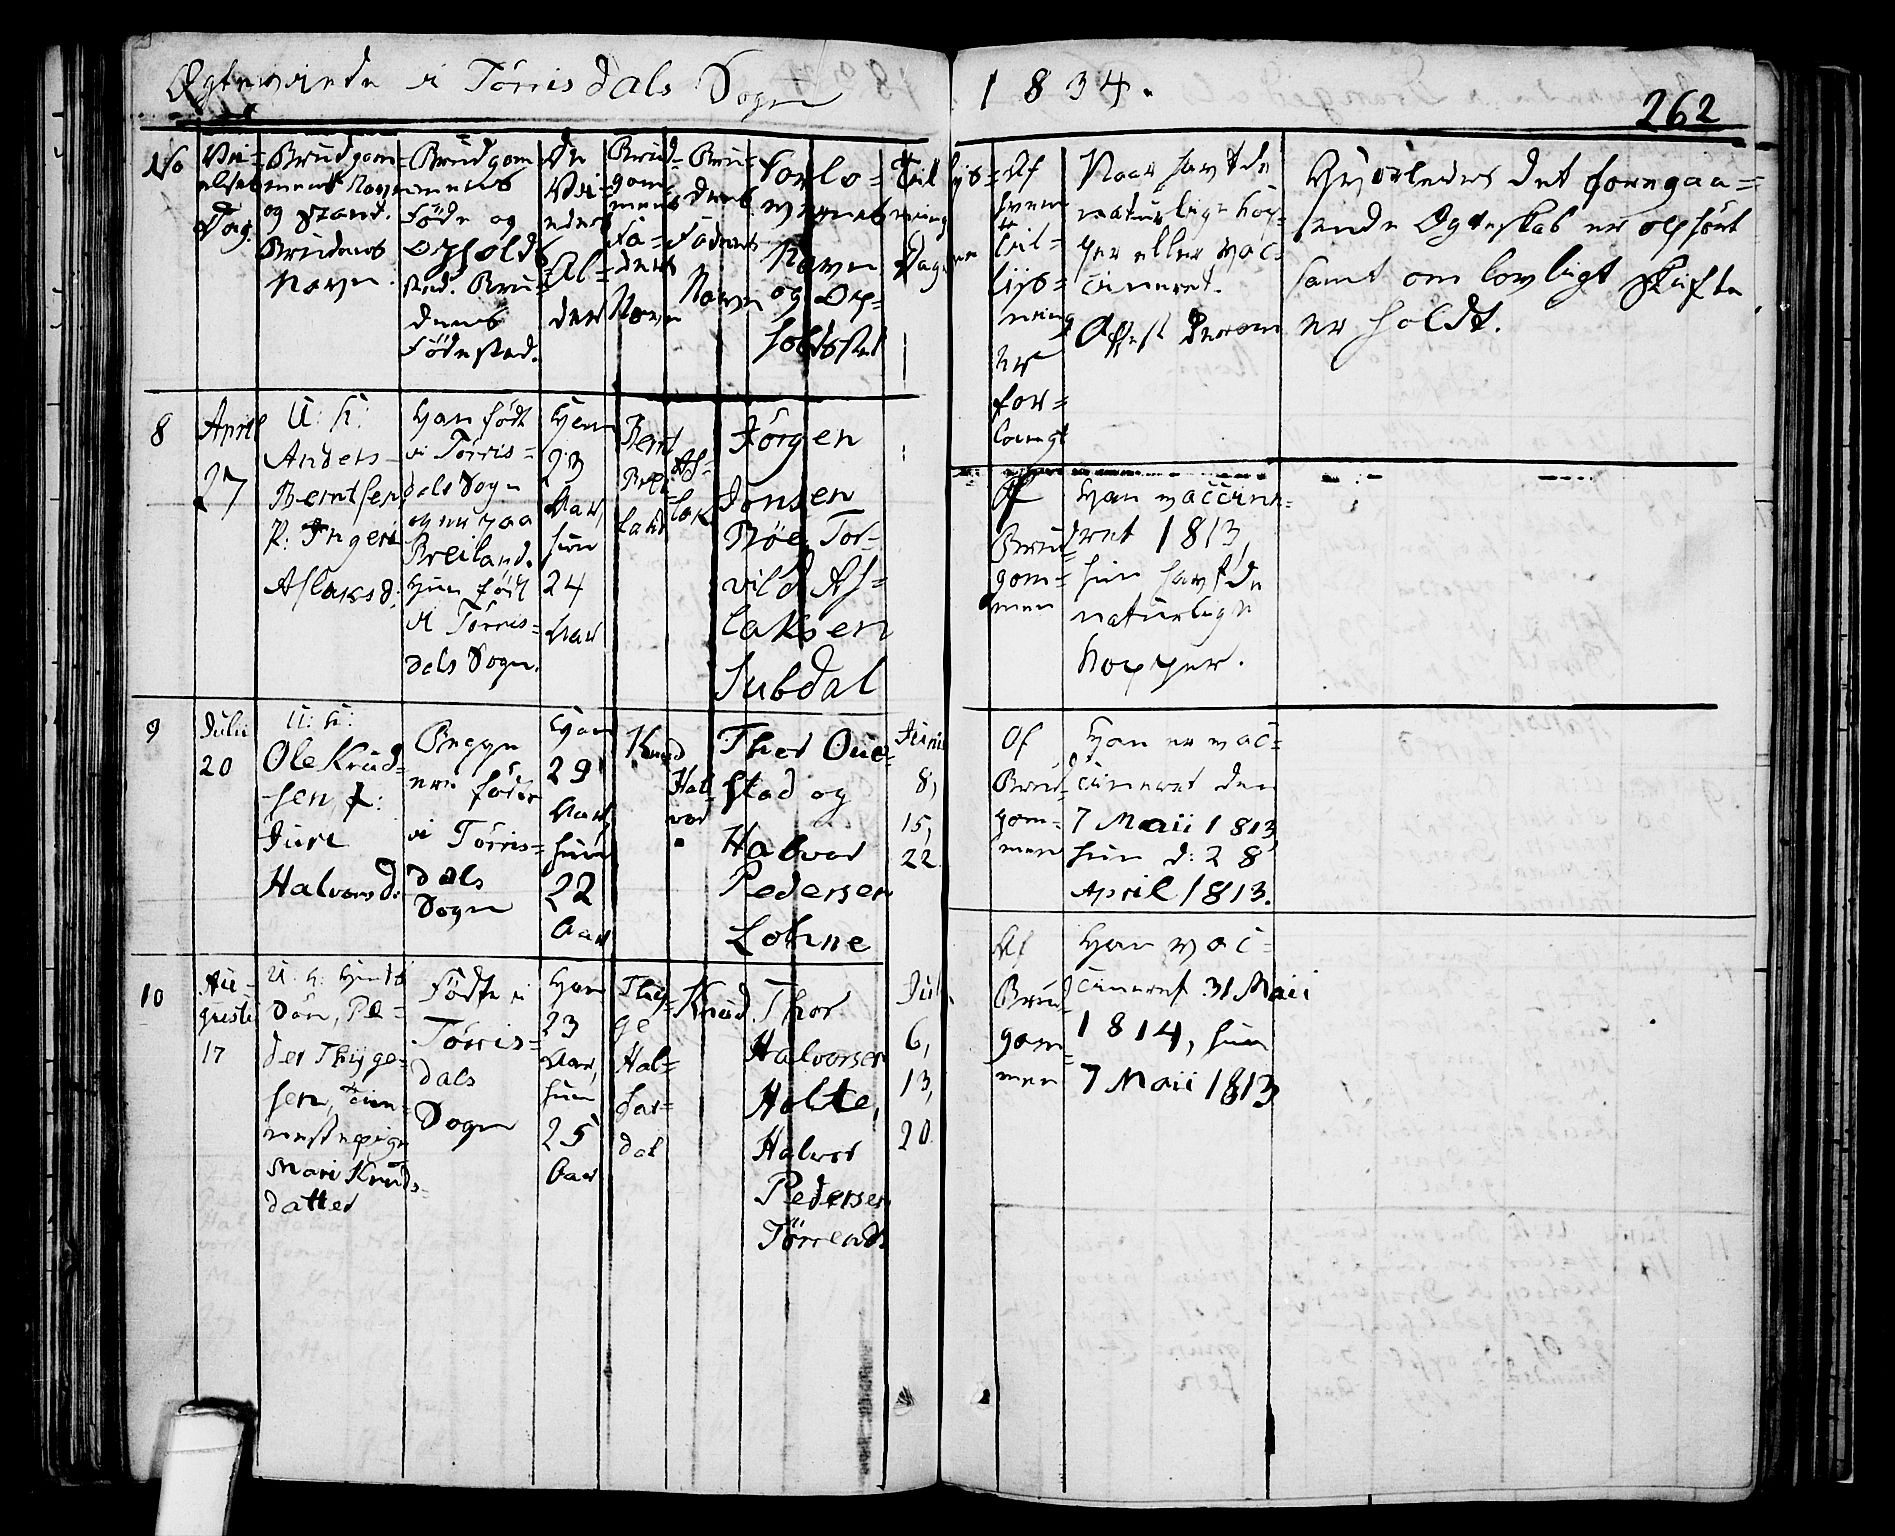 Ægteviede i Törrisdals Sogn 1834.
262
No
Vielses Dag.
Brudgommens Navn og Stand. Brudens Navn.
Brudgommens Föde og Opholdssted. Brudens Födested.
De Viedes Alder
Brudgommens Faders Navn
Brudens Faders Navn
Forlovernes Navn og Opholdssted
Tillysnings Dagene
Af hvem Tillysning er forlangt
Naar havt de naturlige Kopper eller vaccineret. Attest derom
Hvorledes det foregaaende Ægteskab er ophört samt om lovligt Skifte er holdt.
8
April
27
U: K:
Anders
Berntsen
P: Ingeri
Aslaksd.
Han födt
i Törris=
dals Sogn
og er paa
Breiland.
Hun födt
i Törris=
dals Sogn.
Han
23
Aar,
hun
24
Aar
Bernt
Brei=
land
As=
lak
Jörgen
Jonsen
Böe, Tor=
vild As=
laksen
Subdal
Af
Brud
gom=
men
Han vaccine=
ret 1813,
hun havt de
naturlige
Kopper.
9
Julii
20
U: K:
Ole Knud=
sen, P:
Jure
Halvorsd.
Begge
ere födte
i Törris=
dals
Sogn
Han
29
Aar,
hun
22
Aar
Knud
Hal=
vor
Thor Oue=
stad og
Halvor
Pedersen
Lohne
Junii
8,
15,
22
Af
Brud
gom=
men
Han er vac=
cineret den
7 Maii 1813
hun d: 28
April 1813.
10
Au=
gusti
17
U: K:
Sön, Pe=
der Thyge=
sen,
Mari Knuds=
datter
Födte i
Törris=
dals
Sogn
Han
23
Aar,
hun
25
Aar
Thy=
ge
Hal=
far=
dal
Knud
Thor
Halvorsen
Holte,
Halvor
Pedersen
Jul
6,
13,
20
Af
Brud
gom=
men
Han vac=
cineret 31 Maii
1814, hun
7 Maii 1813